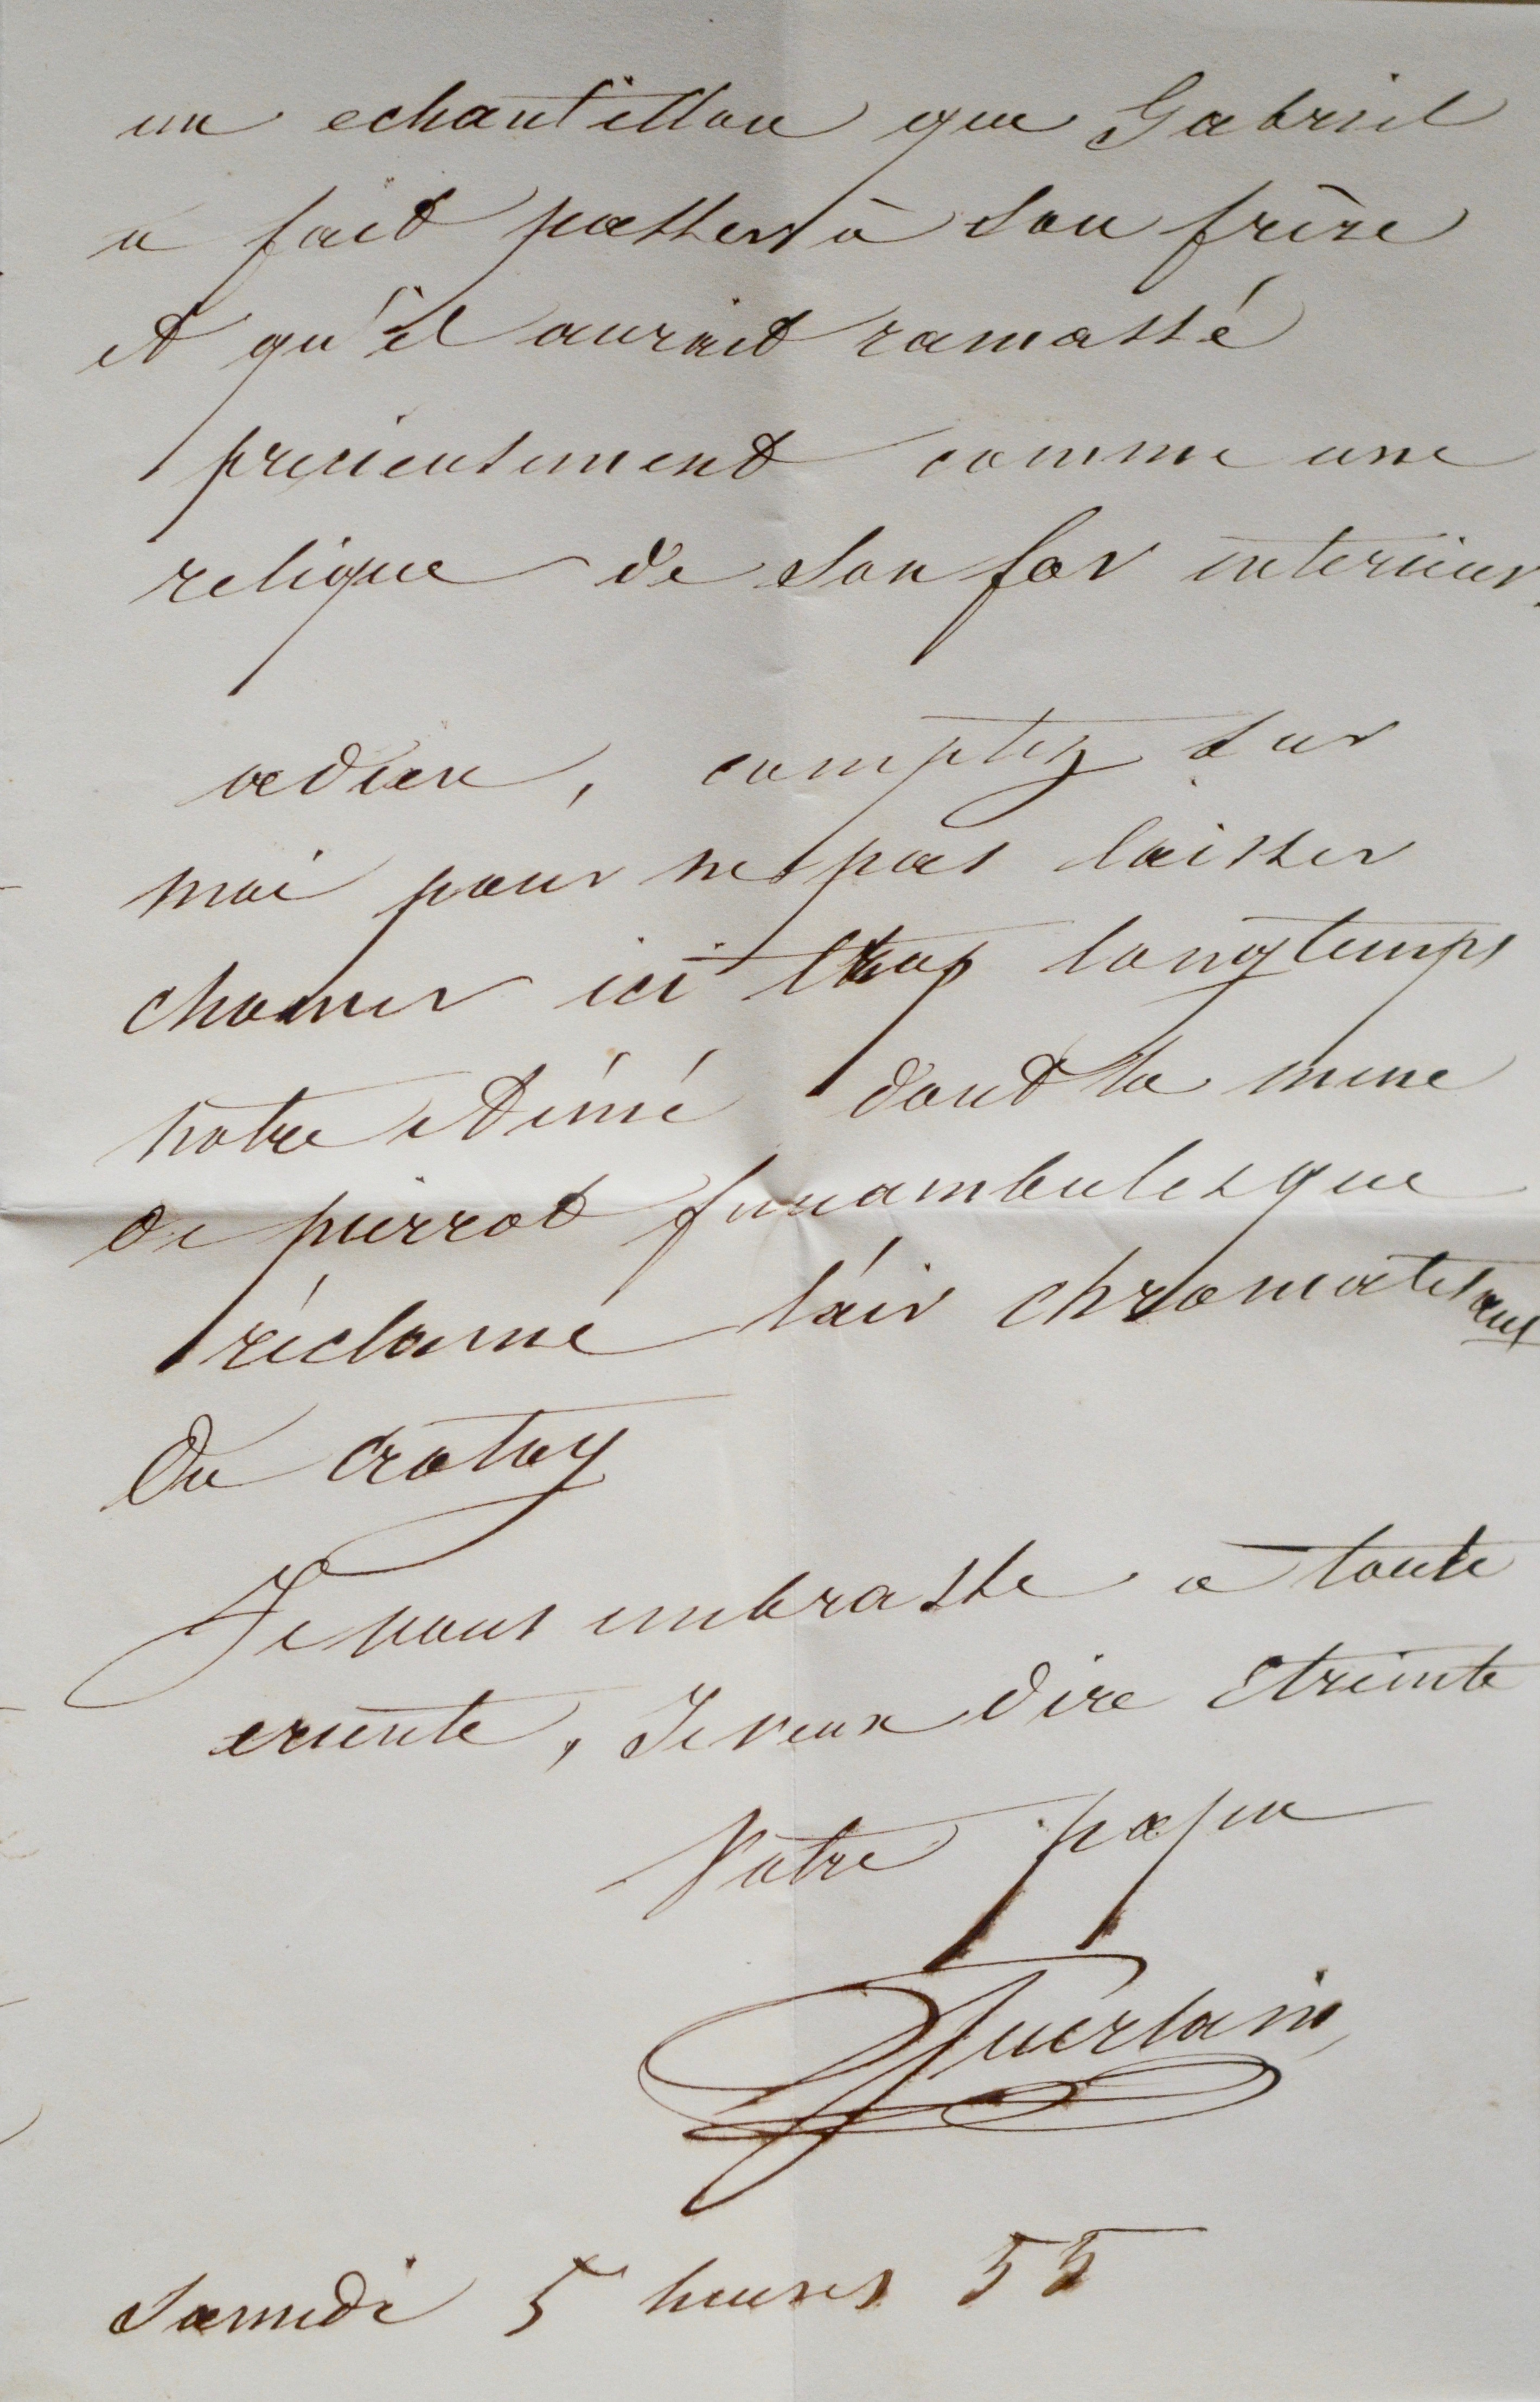 un echantillon que Gabriel
a fait passer à son frère
et qu'il aurait ramassé
precieusement comme une
relique de son for interieur.
adieu, comptez sur
moi pour ne pas laisser
chomer ici trop longtemps
notre Aimé dont la mine
de pierrot funambulesque
réclame l'air chromatisant
Du Crotoy
Je vous embrasse a toute
ereinte, Je veux dire Etreinte
Votre papa
Guerlain
Samedi 5 heures 55